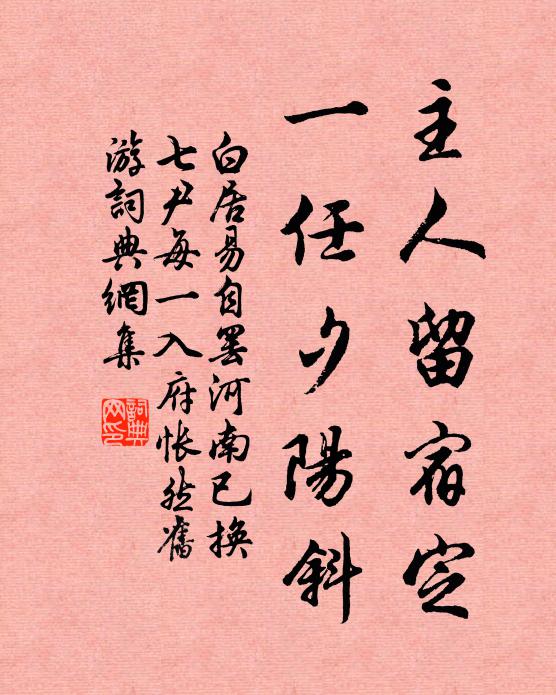 主人留宿定
一任夕陽斜
白居易自罢河南已换
七尹每一入府悵然舊
游詞典網集
詞典
网印